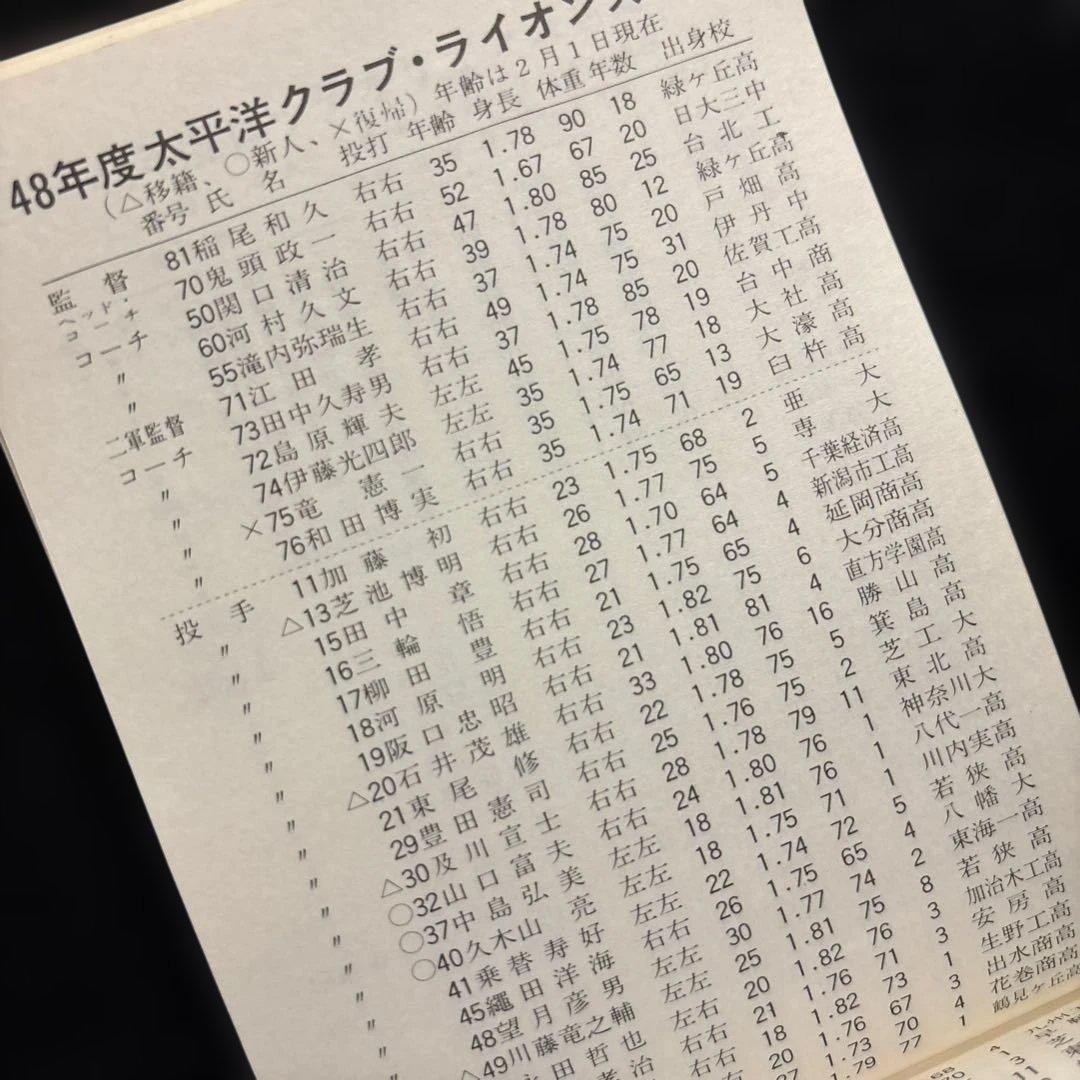 48年度太平洋クラブ・ライオンズ
(△移籍、○新人、×復帰) 年齢は2月1日現在
番号 氏名 投打 年齢 身長 体重 年数 出身校
監督 81稲尾和久 右右 35 1.78 90 18 緑ヶ丘高
ヘッド・コーチ 70鬼頭政一 右右 52 1.67 67 20 日大三中
コーチ 50関口清治 右右 47 1.80 85 25 台北工
〃 60河村久文 右右 39 1.78 80 12 緑ヶ丘高
〃 55滝内弥瑞生 右右 37 1.74 75 20 戸畑高
二軍監督 71江田孝 右右 49 1.74 75 31 伊丹中
コーチ 73田中久寿男 右右 37 1.78 85 20 佐賀工高
〃 72島原輝夫 左左 45 1.75 78 19 台中商
〃 74伊藤光四郎 左左 35 1.74 77 18 大社高
〃 ×75竜憲一 右右 35 1.75 65 13 大濠高
〃 76和田博実 右右 35 1.74 71 19 臼杵高
投手 11加藤初 右右 23 1.75 68 2 亜大
〃 △13芝池博明 右右 26 1.77 75 5 専大
〃 15田中章 右右 28 1.70 64 5 千葉経済高
〃 16三輪悟 右右 27 1.77 64 4 新潟市工高
〃 17柳田豊 右右 21 1.75 65 4 延岡商高
〃 18河原明 右右 23 1.82 75 6 大分商高
〃 19阪口忠昭 右右 21 1.81 81 4 直方学園高
〃 △20石井茂雄 右右 33 1.80 76 16 勝山高
〃 21東尾修 右右 22 1.78 75 5 箕島高
〃 29豊田憲司 右右 25 1.76 75 2 芝工大
〃 △30及川宣士 右右 28 1.78 79 11 東北高
〃 ○32山口富夫 右右 24 1.80 76 1 神奈川大
〃 ○37中島弘美 左左 18 1.81 76 1 八代一高
〃 ○40久木山亮 左左 18 1.75 71 1 川内実高
〃 41乗替寿好 左左 22 1.74 72 5 若狭高
〃 45縄田洋海 右右 26 1.75 65 4 八幡大
〃 48望月彦男 左左 30 1.77 74 2 東海一高
〃 △49川藤竜之輔 左左 25 1.81 75 8 若狭高
田哲也 左右 20 1.82 76 3 加治木工高
治 右右 21 1.76 71 3 安房高
18 1.82 73 1 生野工高
20 1.76 67 3 出水商高
27 1.73 70 4 花巻商高
1.79 77 1 鶴見ヶ丘高